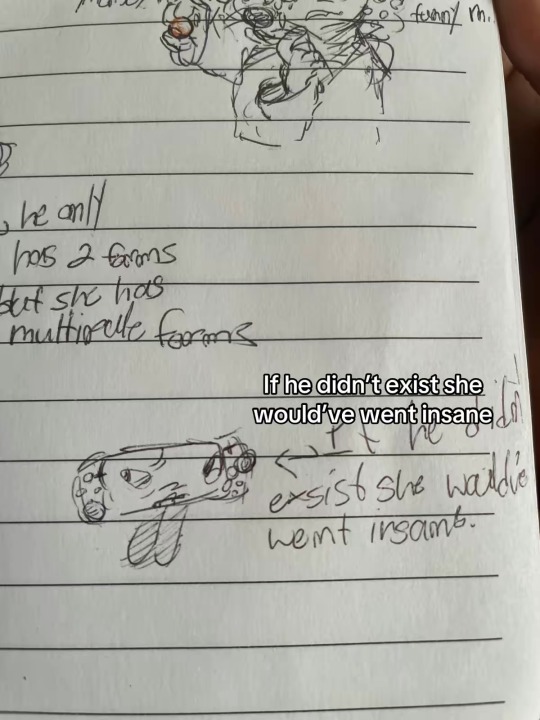 funny m.
, he only
has 2 forms
but she has
multipule forms
If he didn't exist she
would've went insane
If he didn't
exsist she would've
went insane.